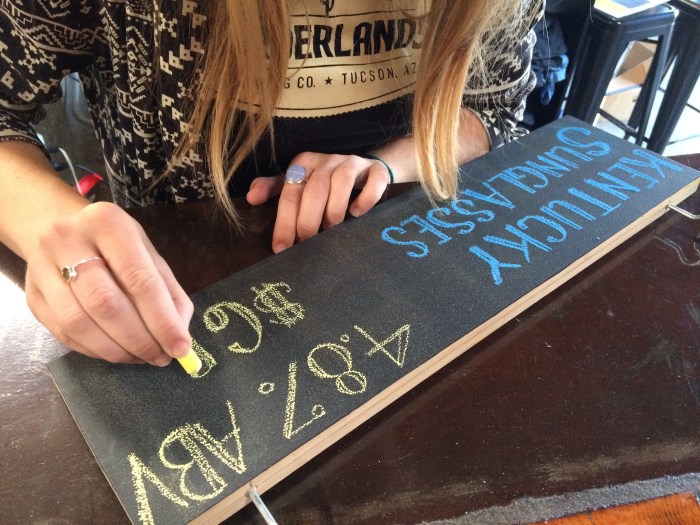 DERLANDS
G CO. ★ TUCSON, AZ
KENTUCKY
SUNGLASSES
$6
4.8% ABV